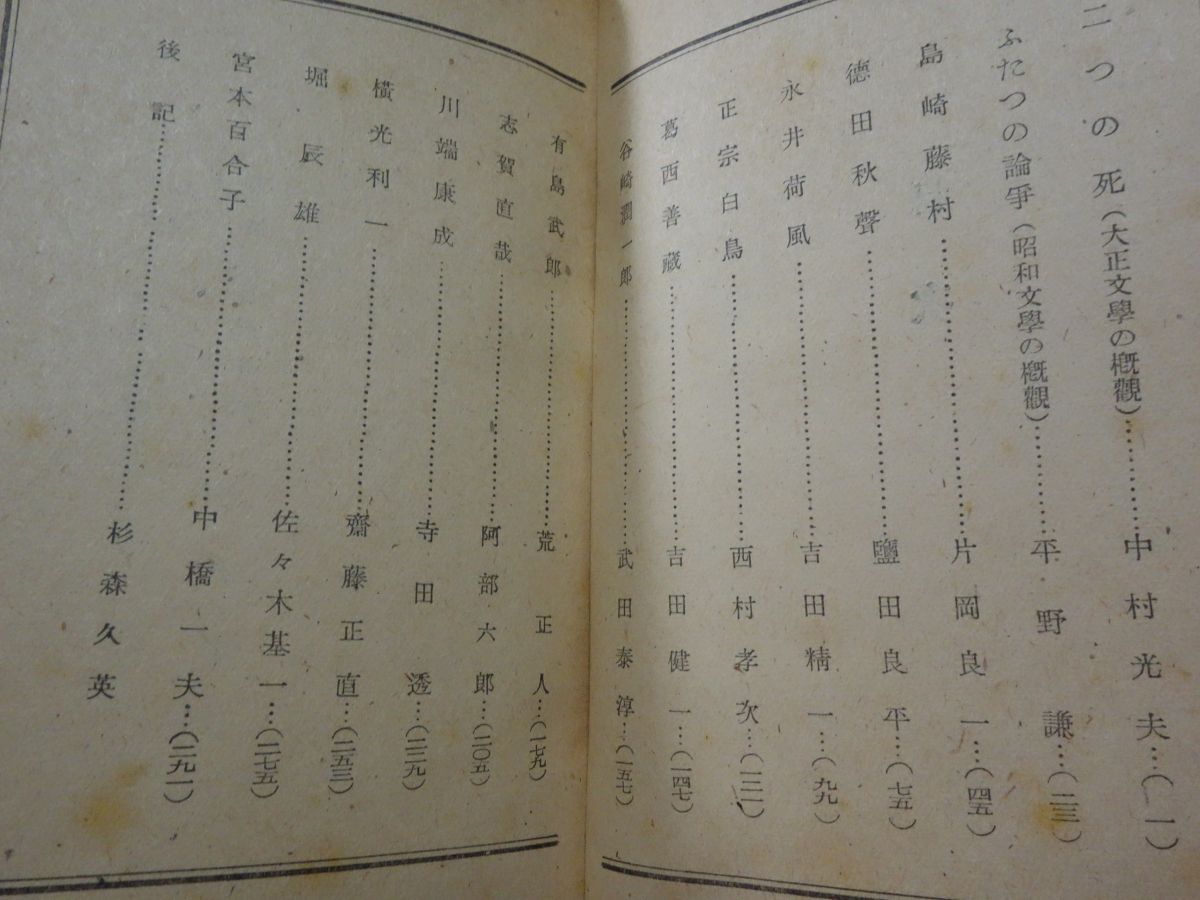 二つの死(大正文學の概觀)…………中村光夫…(一)
ふたつの論爭(昭和文學の概觀)…………平野謙…(二三)
島崎藤村…………片岡良一…(四五)
德田秋聲…………鹽田良平…(七五)
永井荷風…………吉田精一…(九九)
正宗白鳥…………西村孝次…(一二一)
葛西善藏…………吉田健一…(一四七)
谷崎潤一郎…………武田泰淳…(一五七)
有島武郎…………荒正人…(一七九)
志賀直哉…………阿部六郎…(二〇五)
川端康成…………寺田透…(二三九)
橫光利一…………齋藤正直…(二五三)
堀辰雄…………佐々木基一…(二七五)
宮本百合子…………中橋一夫…(二九一)
後記…………杉森久英